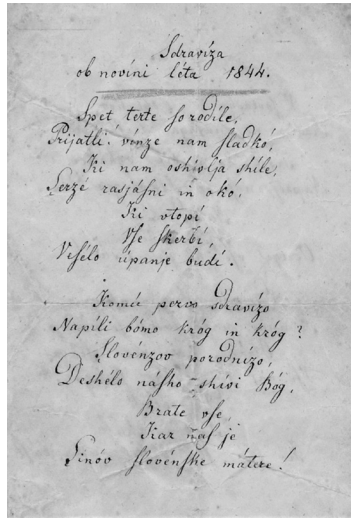 Sdravíza
ob novíni léta 1844.
Spet terte so rodíle,
Prijatli! vínze nam sladkó,
Ki nam oshivlja shile,
Serzé rasjásni in okó,
Ki vtopí
Vse skerbí,
Visélo úpanje budí.
Komú pervo sdravízo
Napíli bómo króg in króg?
Slovénzov porodnízo,
Deshélo násho shívi Bóg,
Brate vse,
Kar nas je
Sinóv slovénske mátere!